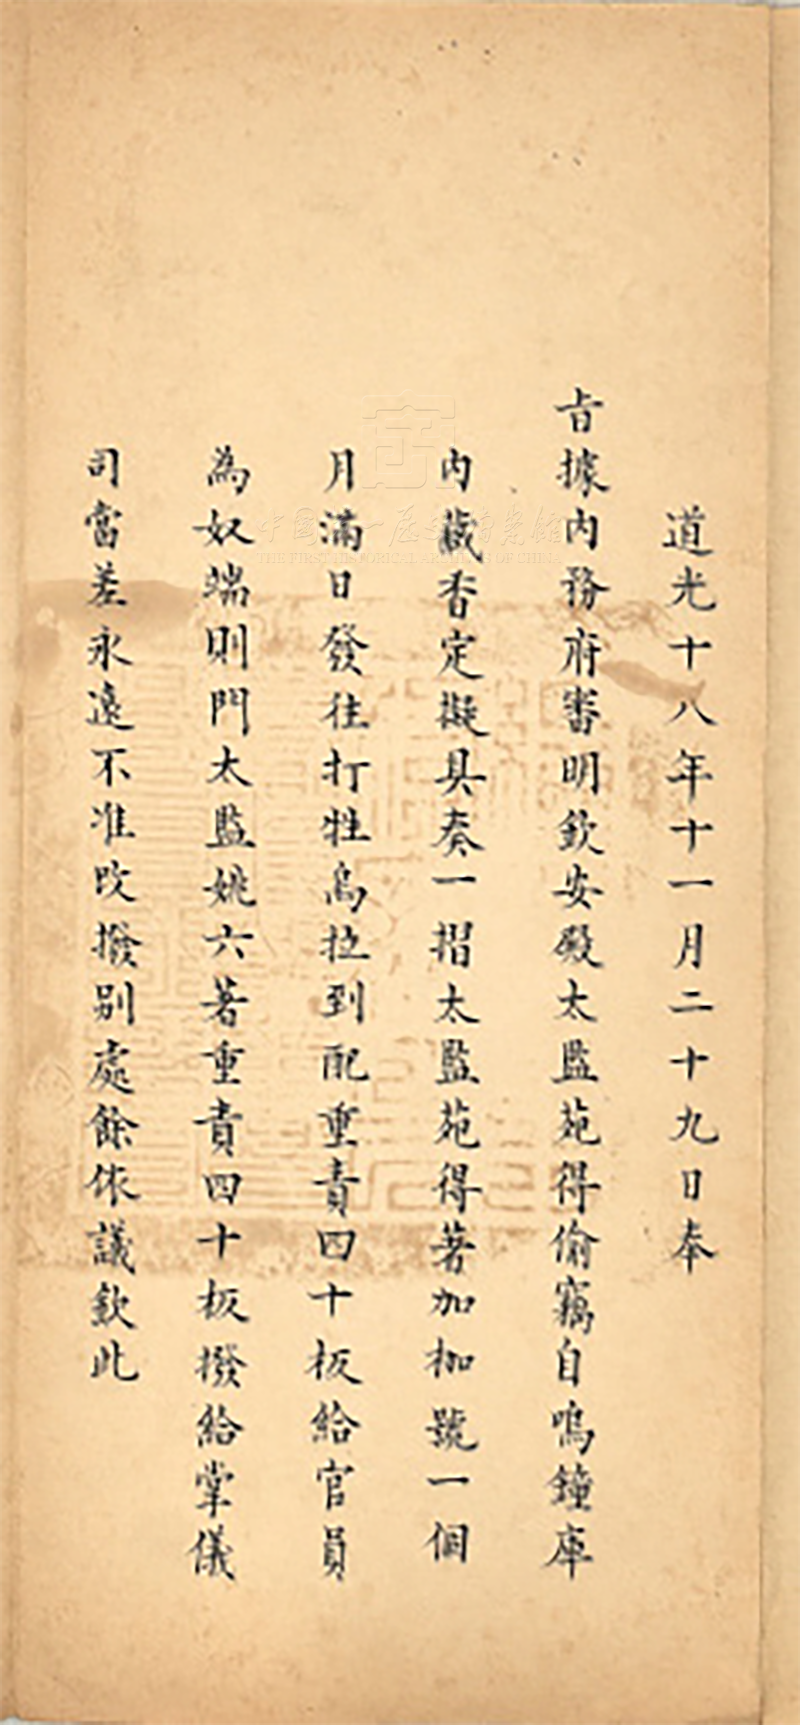 道光十八年十一月二十九日奉
旨據内務府審明欽安殿太監苑得偷竊自鳴鐘庫
内藏香定擬具奏一摺太監苑得著加枷號一個
月滿日發往打牲烏拉到配重責四十板給官員
為奴端則門太監姚六著重責四十板撥給掌儀
司當差永遠不准改撥别處餘依議欽此
中国第一历史档案馆
THE FIRST HISTORICAL ARCHIVES OF CHINA